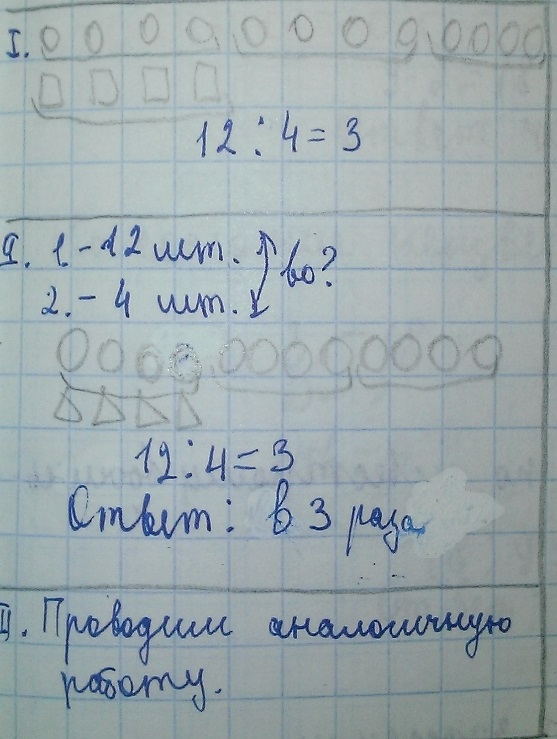 I.
12 : 4 = 3
II. 1 - 12 шт.
2. - 4 шт.
во?
12 : 4 = 3
Ответ: в 3 раза
II. Проводим аналогичную
работу.